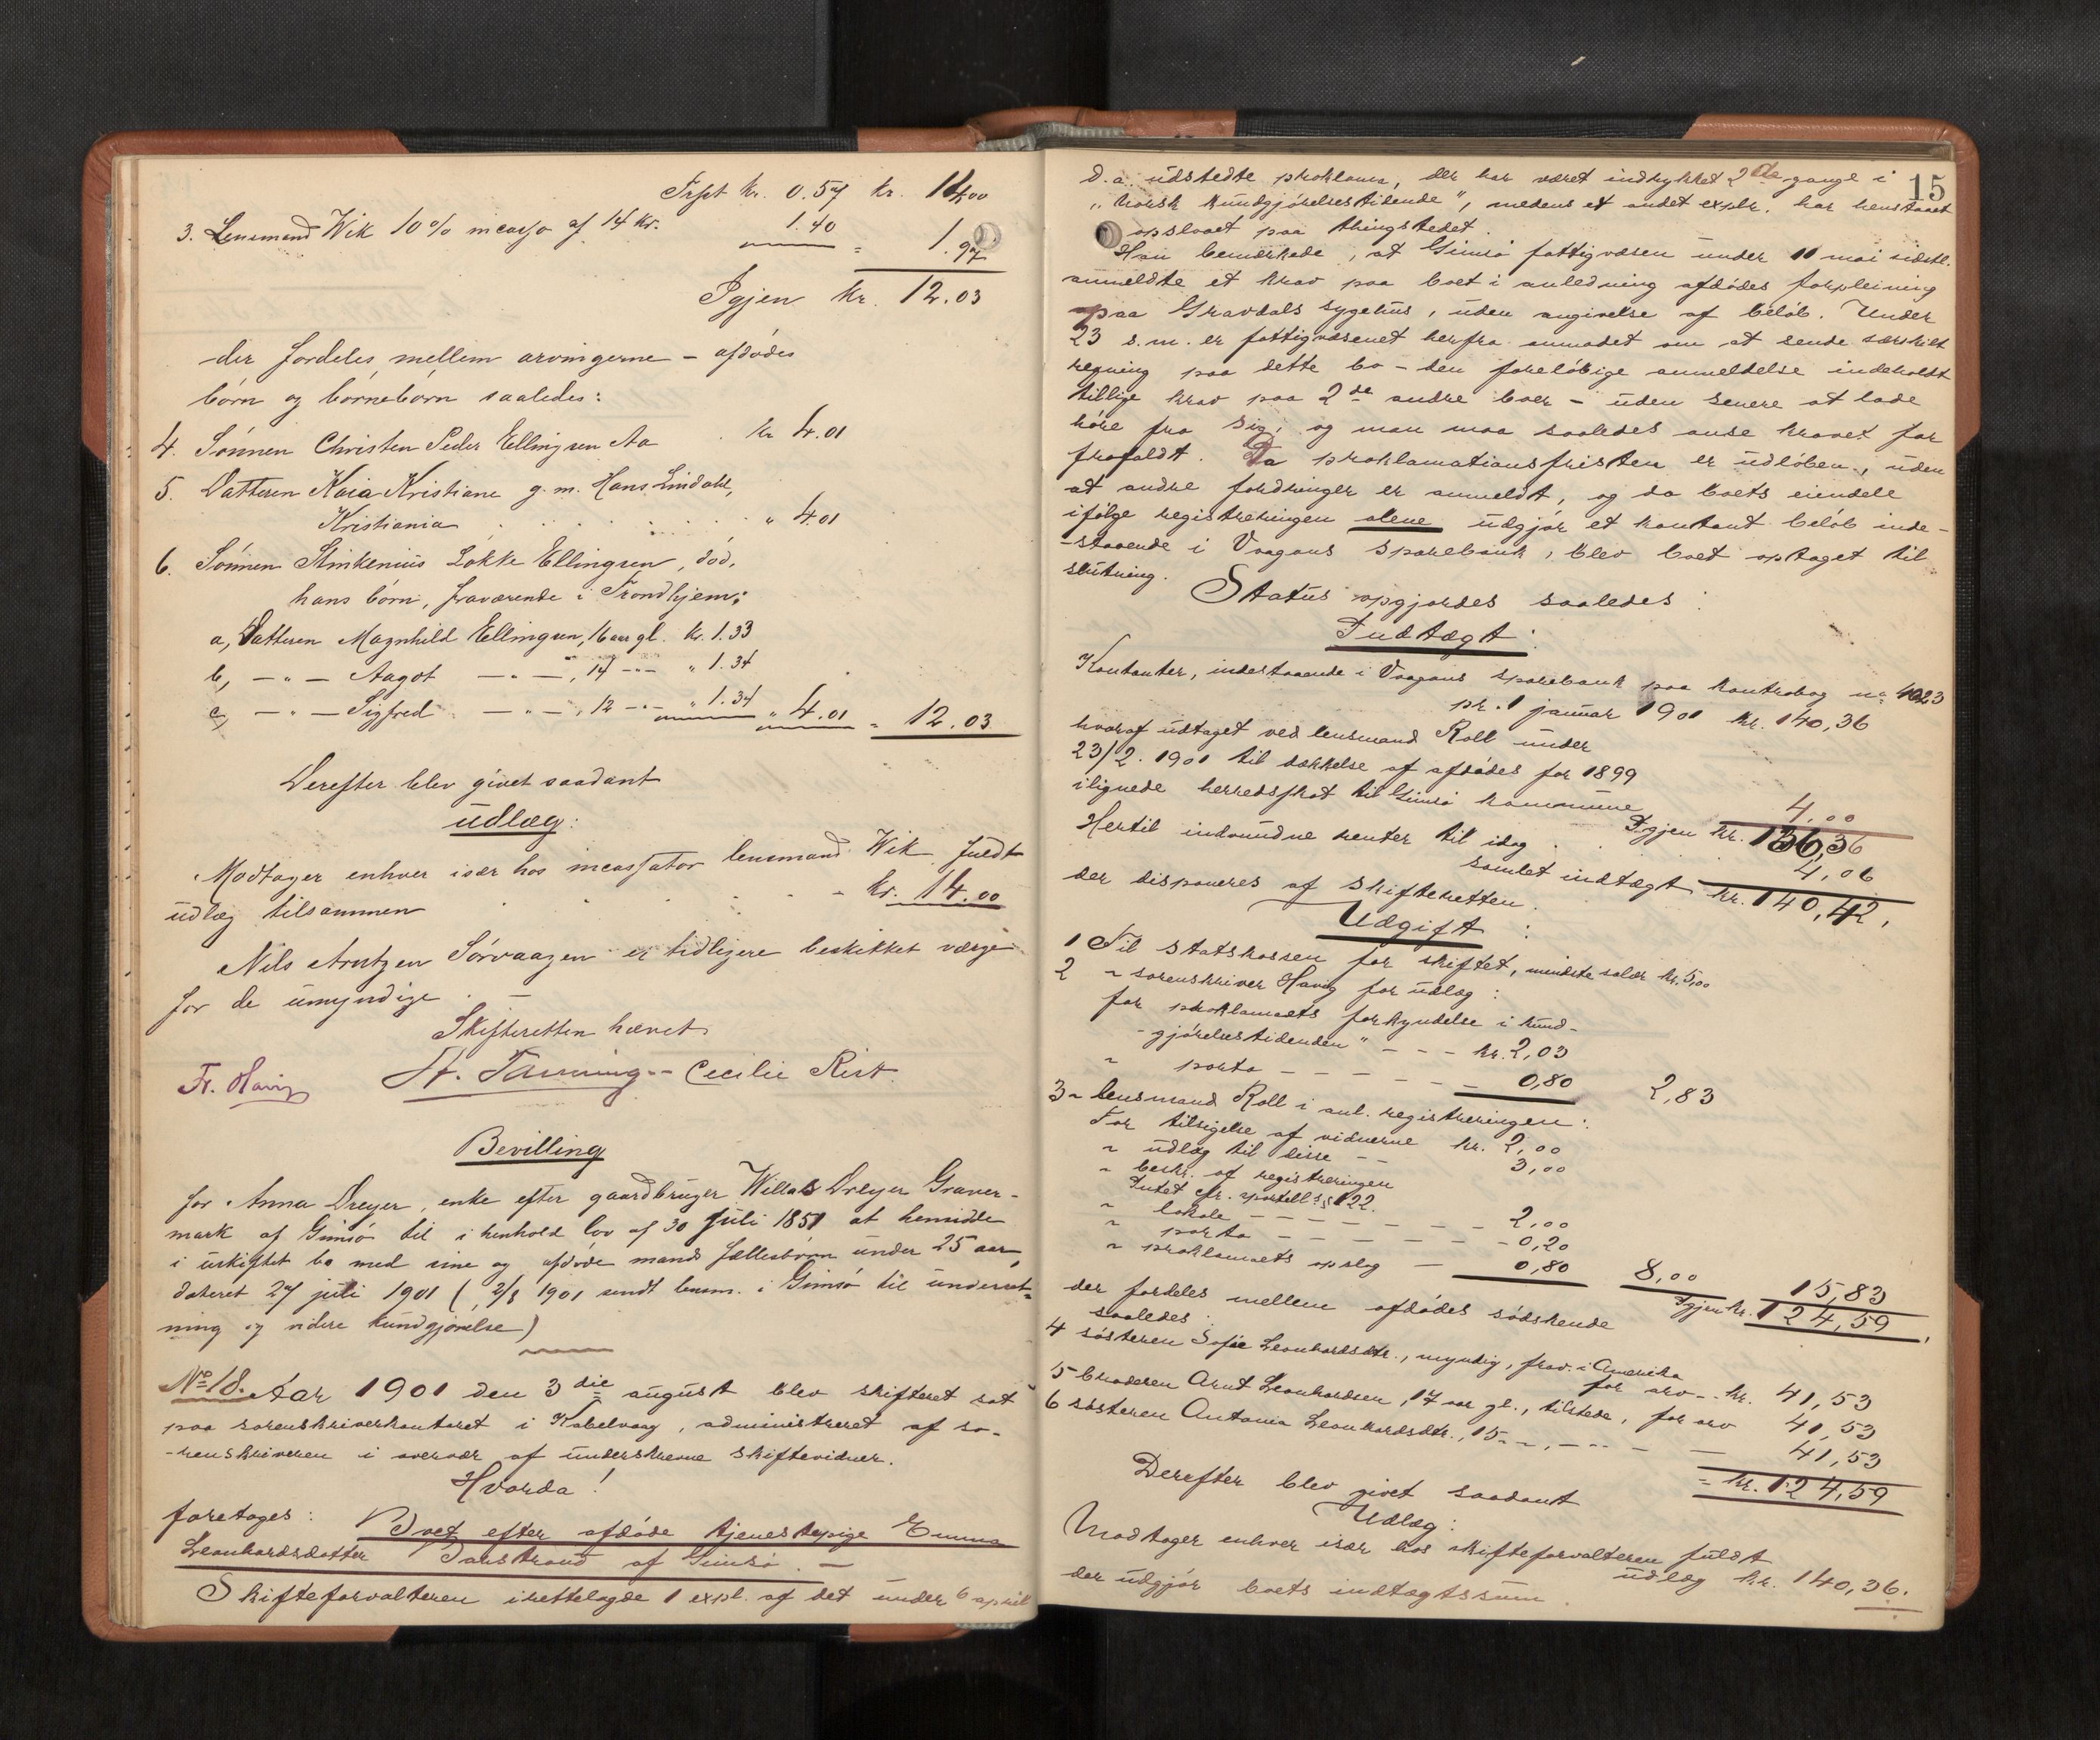 Trspt kr. 0.57 kr. 14.00
3. Lensmand Wik 10% incasso af 14 kr. 1.40 = 1.97
Igjen kr. 12.03
der fordeles mellem arvingerne – afdødes
børn og børnebørn saaledes:
4. Sønnen Christen Peder Ellingsen Aa . kr 4.01
5. Datteren Kaia Kristiane g. m. Hans Lindahl,
Kristiania . . . . . . . " 4.01
6. Sønnen Løkke Ellingsen, død,
hans børn, fraværende i Trondhjem:
a, Datteren Magnhild Ellingsen, 16 aar gl. kr. 1.33
b, — " — Aagot — " —, 14 — " — " 1.34
c, — " — Sigfred — " —, 12 — " — " 1.34 " 4.01 = 12.03
Derefter blev givet saadant
udlæg:
Modtager enhver især hos incassator lensmand Wik fuldt
udlæg tilsammen . . . . - kr. 14.00
Nils Arntzen Sørvaagen er tidligere beskikket værge
for de umyndige.
Skifteretten hævet
Fr. Havig – Cecilie Rist.
Bevilling
for Anna Dreyer, enke efter gaardbruger Willas Dreyer Graver-
mark af Gimsø til i henhold lov af 30 juli 1851 at hensidde
i uskiftet bo med sine og afdøde mands fællesbørn under 25 aar,
dateret 27 juli 1901 (2/8 1901 sendt lensm. i Gimsø til underret-
ning og videre kundgjørelse)
No 18. Aar 1901 den 3die august blev skifteret sat
paa sorenskriverkontoret i Kabelvaag, administreret af so-
-renskriveren i overvær af underskrevne skiftevidner.
Hvorda!
foretoges: Boet efter afdøde tjenestepige Emma
Leonhardsdatter af Gimsø. —
Skifteforvalteren irettelagde 1 expl. af det under 6 april
15
d. a. udstedte proklama, der har været indrykket 2de gange i
„Norsk kundgjørelsestidende", medens et andet explr. har henstaaet
opslaaet paa thingstedet.
Han bemærkede, at Gimsø fattigvæsen under 11 mai sidstl.
anmeldte et krav paa boet i anledning afdødes forpleining
paa Gravdals sygehus, uden angivelse af beløb. Under
23 s. m. er fattigvæsenet herfra anmodet om at sende særskilt
regning paa dette bo – den foreløbige anmeldelse indeholdt
tillige krav paa 2de andre boer – uden senere at lade
høre fra sig, og man maa saaledes anse kravet for
frafaldt. Da proklamationsfristen er udløben, uden
at andre fordringer er anmeldt, og da boets eiendele
ifølge registreringen alene udgjør et kontant beløb inde-
-staaende i Vaagans sparebank, blev boet optaget til
slutning.
Status opgjordes saaledes:
Indtægt:
Kontanter, indestaaende i Vaagans sparebank paa kontrabog no 4023
pr. 1 januar 1901 kr. 140,36
hvoraf udtaget ved lensmand Roll under
23/2. 1901 til dækkelse af afdødes for 1899
ilignede herredsskat til Gimsø kommune 4,00
Igjen kr. 136,36
Hertil indvundne renter til idag . . 4,06
samlet indtægt kr. 140,42,
der disponeres af skifteretten.
Udgift:
1 Til statskassen for skiftet, mindste salær kr. 5,00
2 " sorenskriver Havig for udlæg:
for proklamaets forkyndelse i kund-
-gjørelsestidenden" – – – kr. 2,03
" porto – – – – – – – 0,80 2,83
3 " lensmand Roll i anl. registreringen:
For tilsigelse af vidnerne kr. 2,00
" udlæg til disse – – 3,00
" beskr. af registreringen
Intet cfr. sportell. § 122.
" lokale – – – – – – – 2,00
" porto – – – – – – – 0,20
" proklamaets opslag — 0,80 8,00 15,83
Igjen kr. 124,59,
der fordeles mellem afdødes sødskende
saaledes:
4 søsteren Sofie Leonhardsdtr., myndig, frav. i Amerika
for arv - - kr. 41,53
5 broderen Arnt Leonhardsen, 17 aar gl., tilstede, for arv 41,53
6 søsteren Antonia Leonhardsdtr., 15 - " -, — " — — 41,53
= kr. 124,59
Derefter blev givet saadant
Udlæg:
Modtager enhver især hos skifteforvalteren fuldt
udlæg kr. 140,36.
der udgjør boets indtægtssum.